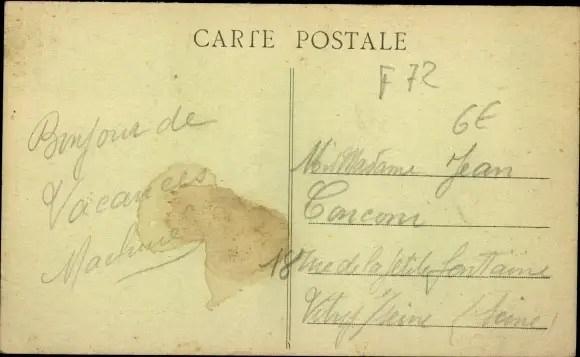 CARTE POSTALE
F 72
6€
Bonjour de
Vacances
M et Madame Jean
18 rue de la petite fontaine
Vitry s/Seine (Seine)